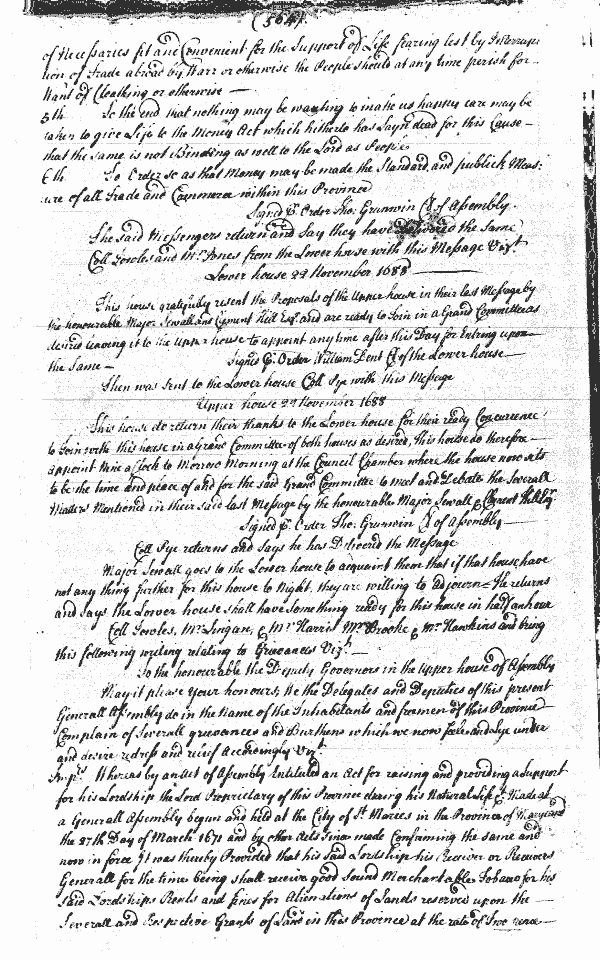 (564)
of Necessaries fit and Convenient for the Support of Life fearing lest by Interrup:
tion of Trade abroad by Warr or otherwise the People should at any time perish for
Want of Cloathing or otherwise —
5th. To the end that nothing may be wanting to make us happy care may be
taken to give Life to the Money Act which hitherto has layn dead for this Cause
that the same is not Binding as well to the Lord as People
6th. To Order so as that Money may be made the Standard and publick Meas:
ure of all Trade and Commerce within this Province
Signed p. Order Tho: Grunwin Cl of Assembly.
The said Messengers return and Say they have Delivered the Same
Coll Jowles and Mr. Jones from the Lower house with this Message Vizt.
Lower house 22 November 1688 —
This house gratefully resent the Proposals of the Upper house in their last Message by
the honourable Major Sewall and Clement Hill Esqr. and are ready to Join in a Grand Committee as
desired leaving it to the Upper house to appoint any time after this Day for Entring upon
the Same — Signed p. Order William Dent Cl of the Lower house —
Then was sent to the Lower house Coll Pye with this Message
Upper house 22 November 1688
This house do return their thanks to the Lower house for their ready Concurrence
to Join with this house in a Grand Committee of both houses as desired, this house do therefore
appoint Nine a Clock to Morrow Morning at the Council Chamber where the house now sits
to be the time and place of and for the said Grand Committee to meet and Debate the Severall
Matters Mentioned in their Said last Message by the honourable Major Sewall & Clement Hill Esqr.
Signed p. Order Tho: Grunwin Cl of Assembly —
Coll Pye returns and Says he has Delivered the Message
Major Sewall goes to the Lower house to acquaint them that if that house have
not any thing further for this house to Night, they are willing to adjourn — He returns
and Says the Lower house shall have something ready for this house in half an hour
Coll Jowles, Mr. Lingan, & Mr Harris Mr. Brooke & Mr Hawkins and bring
this following writing relating to Grievances Vizt. —
To the honourable the Deputy Governors in the Upper house of Assembly
May it please Your honours, We the Delegates and Deputies of this present
Generall Assembly do in the Name of the Inhabitants and freemen of this Province
Complain of Severall grievances and Burthens which we now feele and lye under
and desire redress and relief Accordingly Vizt.
Imps. Whereas by an Act of Assembly Intituled an Act for raising and providing a Support
for his Lordship the Lord Proprietary of this Province during his Natural Life & Made at
a General Assembly begun and held at the City of St. Maries in the Province of Maryland
the 27th Day of March 1671 and by other Acts Since made Confirming the same and
now in force it was thereby Provided that his Said Lordship his Receiver or Receivers
Generall for the time being shall receive good Sound Merchantable Tobacco for his
Said Lordships Rents and fines for Alienations of Lands reserved upon the
Severall and Respective Grants of Land in this Province at the rate of Two pence